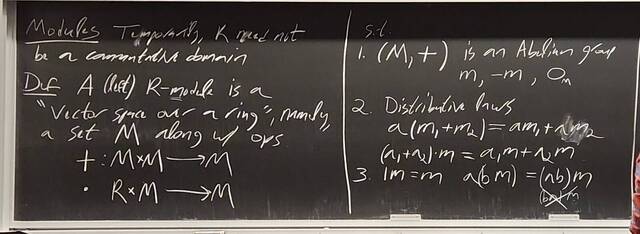 Modules Temporarily, R need not
be a commutative domain
Def A (left) R-module is a
"Vector space over a ring", namely,
a set M along w/ ops
+ : M×M → M
• R×M → M
s.t.
1. (M,+) is an Abelian group
m, -m, 0m
2. Distributive laws
a(m1+m2) = am1 + am2
(a1+a2)·m = a1m + a2m
3. 1m = m a(bm) = (ab)m